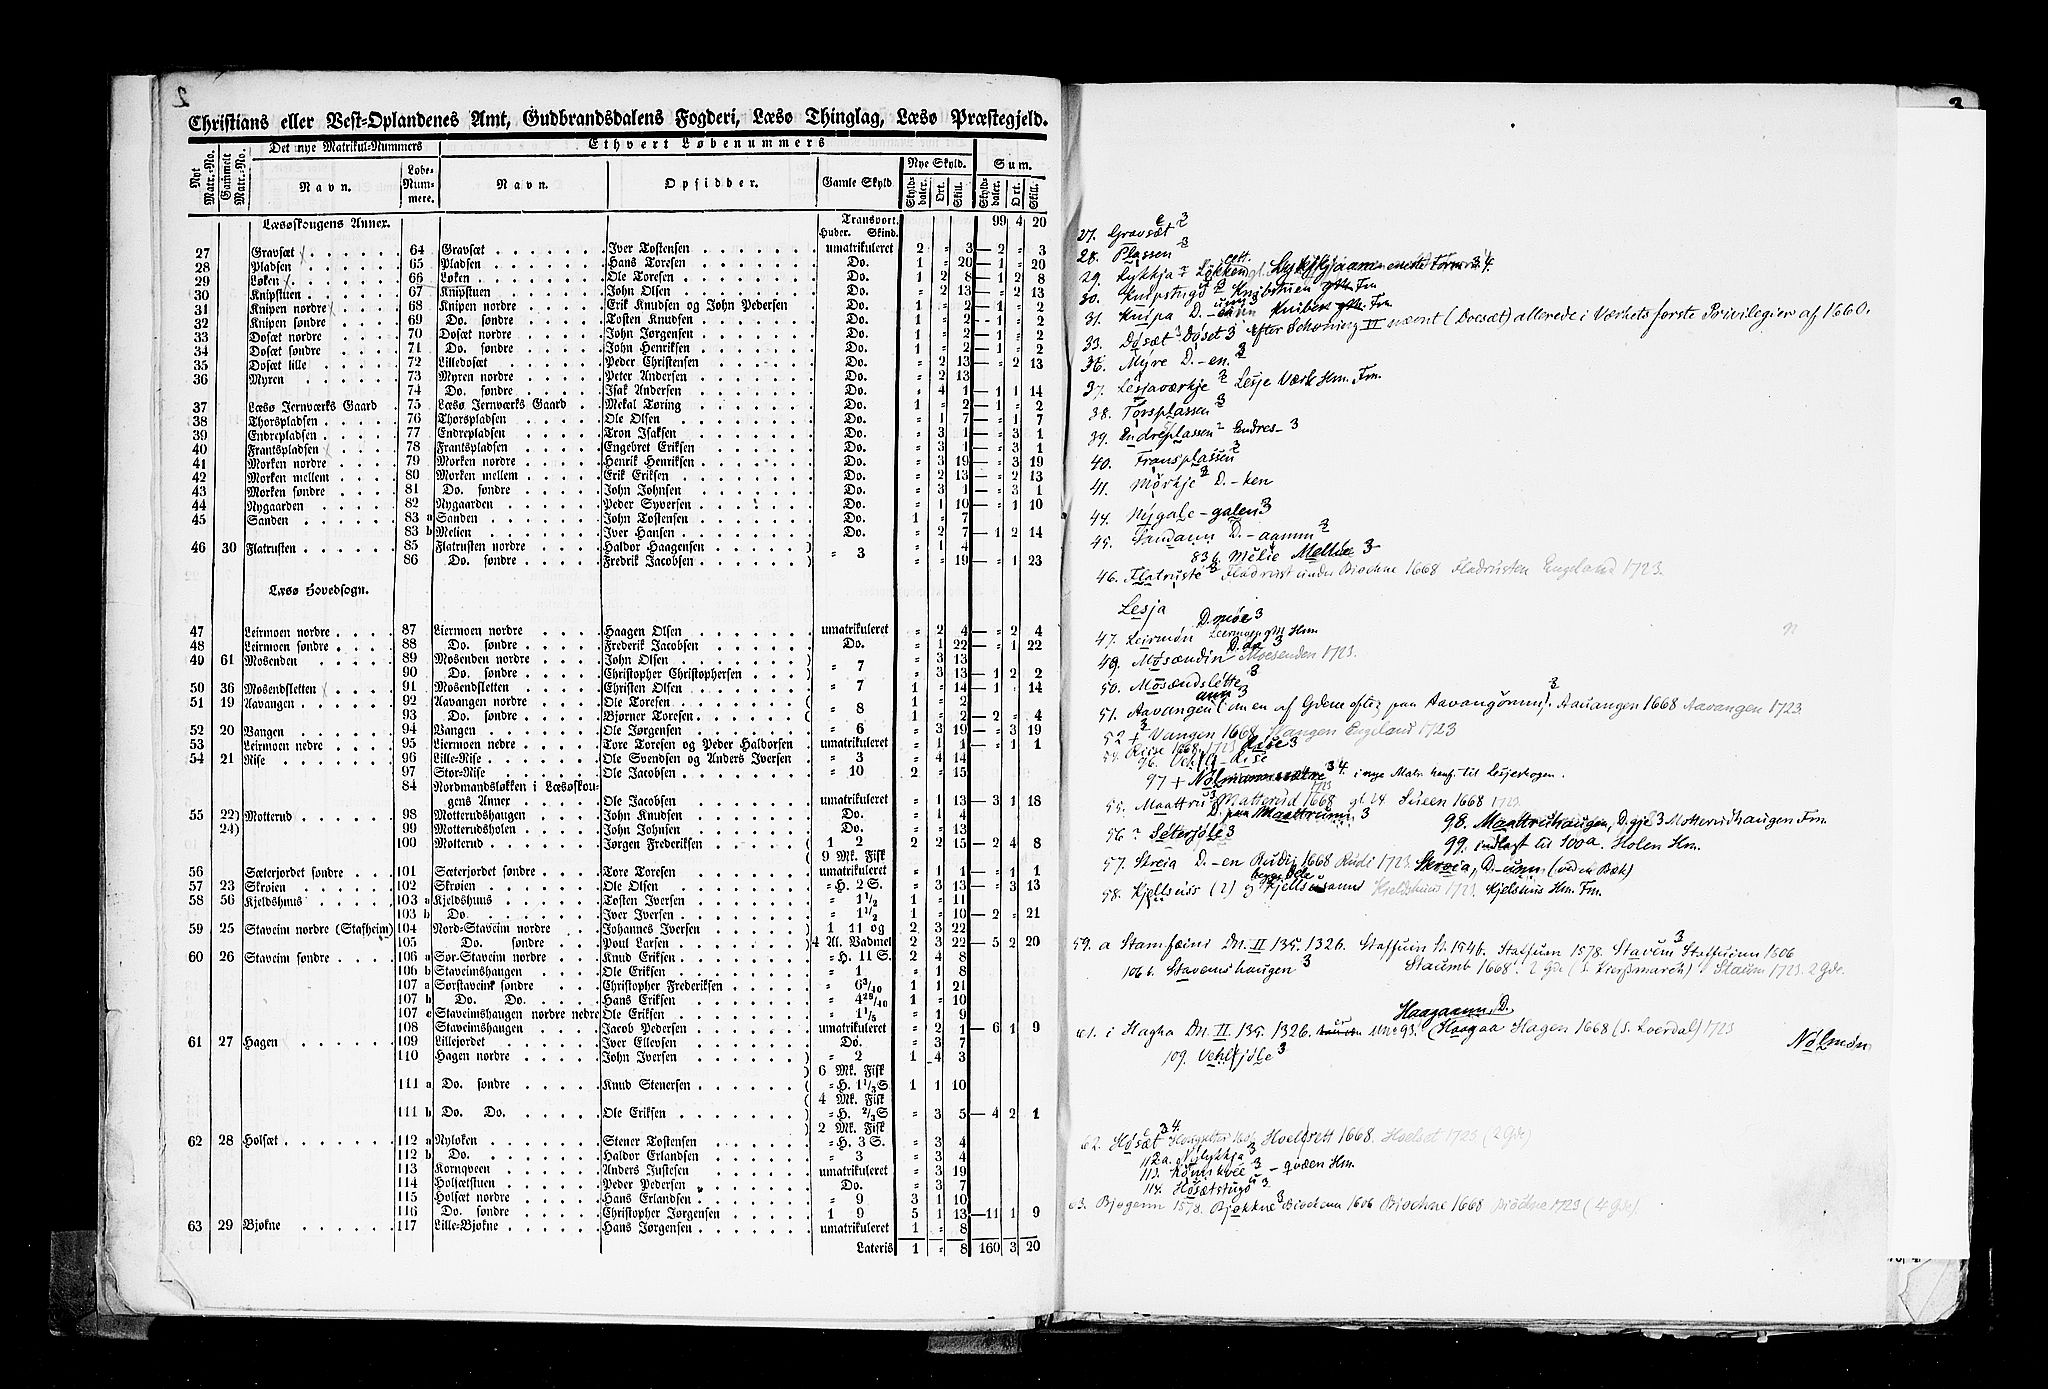 2
Christians eller Vest-Oplandenes Amt, Gudbrandsdalens Fogderi, Læsø Thinglag, Læsø Præstegjeld.
Nyt Matr.-No. Gammelt Matr.-No. Det nye Matrikul-Nummers Ethvert Løbenummers
Navn. Løbe-Nummere. Navn. Opsidder. Gamle Skyld Nye Skyld. Sum.
Skylddaler. Ort. Skill. Skylddaler. Ort. Skill.
Læsøskougens Annex. Transport. 99 4 20
Huder. Skind.
27 Gravsæt 64 Gravsæt Iver Tostensen umatrikuleret 2 " 3 — 2 " 3
28 Pladsen 65 Pladsen Hans Toresen Do. 1 " 20 — 1 " 20
29 Løken 66 Løken Ole Toresen Do. 1 2 8 — 1 2 8
30 Knipstuen 67 Knipstuen John Olsen Do. " 2 13 — " 2 13
31 Knipen nordre 68 Knipen nordre Erik Knudsen og John Pedersen Do. 1 " 2 — 1 " 2
32 Knipen søndre 69 Do. søndre Tosten Knudsen Do. 1 " 2 — 1 " 2
33 Dosæt nordre 70 Dosæt nordre John Jørgensen Do. 1 " 2 — 1 " 2
34 Dosæt søndre 71 Do. søndre John Henriksen Do. 1 " 2 — 1 " 2
35 Dosæt lille 72 Lilledosæt Peder Christensen Do. " 2 13 — " 2 13
36 Myren 73 Myren nordre Peter Andersen Do. " 2 13
74 Do. søndre Isak Andersen Do. " 4 1 — 1 1 14
37 Læsø Jernværks Gaard 75 Læsø Jernværks Gaard Mekal Tøring Do. 1 " 2 — 1 " 2
38 Thorspladsen 76 Thorspladsen Ole Olsen Do. " 1 7 — " 1 7
39 Endrepladsen 77 Endrepladsen Tron Isaksen Do. " 3 1 — " 3 1
40 Frantspladsen 78 Frantspladsen Engebret Eriksen Do. " 3 1 — " 3 1
41 Morken nordre 79 Morken nordre Henrik Henriksen Do. " 3 19 — " 3 19
42 Morken mellem 80 Morken mellem Erik Eriksen Do. " 2 13 — " 2 13
43 Morken søndre 81 Do. søndre John Johnsen Do. " 3 1 — " 3 1
44 Nygaarden 82 Nygaarden Peder Syversen Do. " 1 10 — " 1 10
45 Sanden 83 a Sanden John Tostensen Do. 1 " 7
83 b Melien Iver Hansen Do. " 2 7 — 1 2 14
46 30 Flatrusten 85 Flatrusten nordre Haldor Haagensen ) " 3 " 1 4
86 Do. søndre Fredrik Jacobsen ) " " 19 — " 1 23
Læsø Hovedsogn.
47 Leirmoen nordre 87 Liermoen nordre Haagen Olsen umatrikuleret " 2 4 — " 2 4
48 Leirmoen søndre 88 Do. søndre Frederik Jacobsen Do. " 1 22 — " 1 22
49 61 Mosenden 89 Mosenden nordre John Olsen ) " 7 " 3 13
90 Do. søndre Christopher Christophersen ) " 3 13 — 1 2 2
50 36 Mosendsletten 91 Mosendsletten Christen Olsen " 7 1 " 14 — 1 " 14
51 19 Aavangen 92 Aavangen nordre Ole Toresen ( " 8 1 " 2
93 Do. søndre Bjørner Toresen ( 1 " 2 — 2 " 4
52 20 Vangen 94 Vangen Ole Jørgensen " 6 " 3 19 — " 3 19
53 Leirmoen nedre 95 Liermoen nedre Tore Toresen og Peder Haldorsen umatrikuleret " 1 1 — " 1 1
54 21 Rise 96 Lille-Rise Ole Svendsen og Anders Iversen " 3 " 4 14
97 Stor-Rise Ole Jacobsen " 10 2 " 15
84 Nordmandsløkken i Læsøskou-
gens Annex Ole Jacobsen umatrikuleret " 1 13 — 3 1 18
55 22) Motterud 98 Motterudshaugen John Knudsen Do. " 1 4
24) 99 Motterudsholen John Johnsen Do. " " 13
100 Motterud Jørgen Frederiksen ( 1 2 2 2 15 — 2 4 8
( 9 Mk. Fisk
56 Sæterjordet søndre 101 Sæterjordet søndre Tore Toresen umatrikuleret " 1 1 — " 1 1
57 23 Skrøien 102 Skrøien Ole Olsen " H. 2 S. " 3 13 — " 3 13
58 56 Kjeldshuus 103 a Kjeldshuus Tosten Iversen " 1 1/2 1 " 11
103 b Do. Iver Iversen " 1 1/2 1 " 10 — 2 " 21
59 25 Staveim nordre (Stafheim) 104 Nord-Staveim nordre Johannes Iversen ) 1 11 og 2 3 22
105 Do. søndre Poul Larsen ) 4 Al. Vadmel 2 3 22 — 5 2 20
60 26 Staveim søndre 106 a Sør-Staveim nordre Knud Eriksen " H. 11 S. 2 4 8
106 b Staveimshaugen Ole Eriksen " 1 " 1 8
107 a Sørstaveink søndre Christopher Frederiksen " 6 3/40 1 1 21
107 b Do. Do. Hans Eriksen " 4 29/40 1 " 10
107 c Staveimshaugen nordre nedre Ole Eriksen " 1 1/5 " 1 9
108 Staveimshaugen Jacob Pedersen umatrikuleret " 2 1 — 6 1 9
61 27 Hagen 109 Lillejordet Iver Ellevsen Do. " 3 7
110 Hagen nordre John Iversen ) " 2 1 4 3
) 6 Mk. Fisk
111 a Do. søndre Knud Stenersen ( " H. 1 1/3 S 1 1 10
( 4 Mk. Fisk
111 b Do. Do. Ole Eriksen ) " H. 2/3 S " 3 5 — 4 2 1
) 2 Mk. Fisk
62 28 Holsæt 112 a Nyløken Stener Tostensen " H. 3 S. " 3 4
112 b Do. Haldor Erlandsen " 3 " 3 4
113 Kornqveen Anders Justesen umatrikuleret " 3 19
114 Holsætstuen Peder Pedersen Do. " 3 7
115 Holsæt nordre Hans Erlandsen " 9 3 1 10
116 Do. søndre Christopher Jørgensen 1 9 5 1 13 — 11 1 9
63 29 Bjøkne 117 Lille-Bjøkne Hans Jørgensen umatrikuleret 1 " 8
Lateris 1 " 8 160 3 20
3
27. Gravsæt 3
28. Plassen
29. Lykkja Løkken
30. Knipstugo Knibstuen Fm
31. Knipa D. Kniben Fm.
33. Døsæt Døset 3 efter Schøning II nævnt (Dosæt) allerede i Værkets første Privilegier af 1660.
36. Myre D. -en
37. Lesjaværkje Lesje Værk Hm. Fm.
38. Torsplassen
39. Endreplassen Endres- 3
40. Fransplassen
41. Mørkje D. -ken
44. Nygale -galen 3
45. Sandann D. -aamm
83 b. Melie Mellie 3
46. Flatruste Fladrust under Biochne 1668 Fladrusten Engeland 1723.
Lesja
D. møe 3
47. Leirmøn Hm.
49. Møsændin Moesenden 1723.
50. Møsændslette
51. Aavangen Aauangen 1668 Aavangen 1723.
52 + Vangen 1668 Vangen Engeland 1723
54. Riise 1668. 1723 Rise 3
96. -Rise
97 + i nye Matr. henf. til Lesjeskogen.
55. Maattru Matterud 1668 gl. 24. Sueen 1668 1723
98. Maattruhaugen, D. gje 3 Motterudhaugen Fm.
56. Seterjøle 3
99. indlagt til 100a. Holen Hm.
57. Skreia D. -en Rudj 1668 Rudi 1723 Skrøia, D. -uom, (ved en Bæk)
58. Kjellsuss (2) Kjeldshuus 1723 Kjelshus Hm. Fm.
59. a Stamfæimi DN. II 135. 1326. Staffuin 1546. Staffum 1578. Stavem 3 Staffuum 1606
106 b. Stavemshaugen 3 Staumb 1668. 2 Gde Staum 1723. 2 Gde.
Haagaamm, D.
61. i Hagha DN. II 135. 1326. (Haagaa Hagen 1668 1723
109. Vehlejøle 3
Nølmøn
62. Høsæt Hoelsett 1668. Hoelset 1723 (2 Gde)
112a. Nylykkja 3
113. Kønnskvee 3 -qvæen Hm.
114. Høsætstugo 3
63. Bjogenn 1578. Bjøkkne 3 1606 Biochne 1668 Biöchne 1723 (4 Gde)